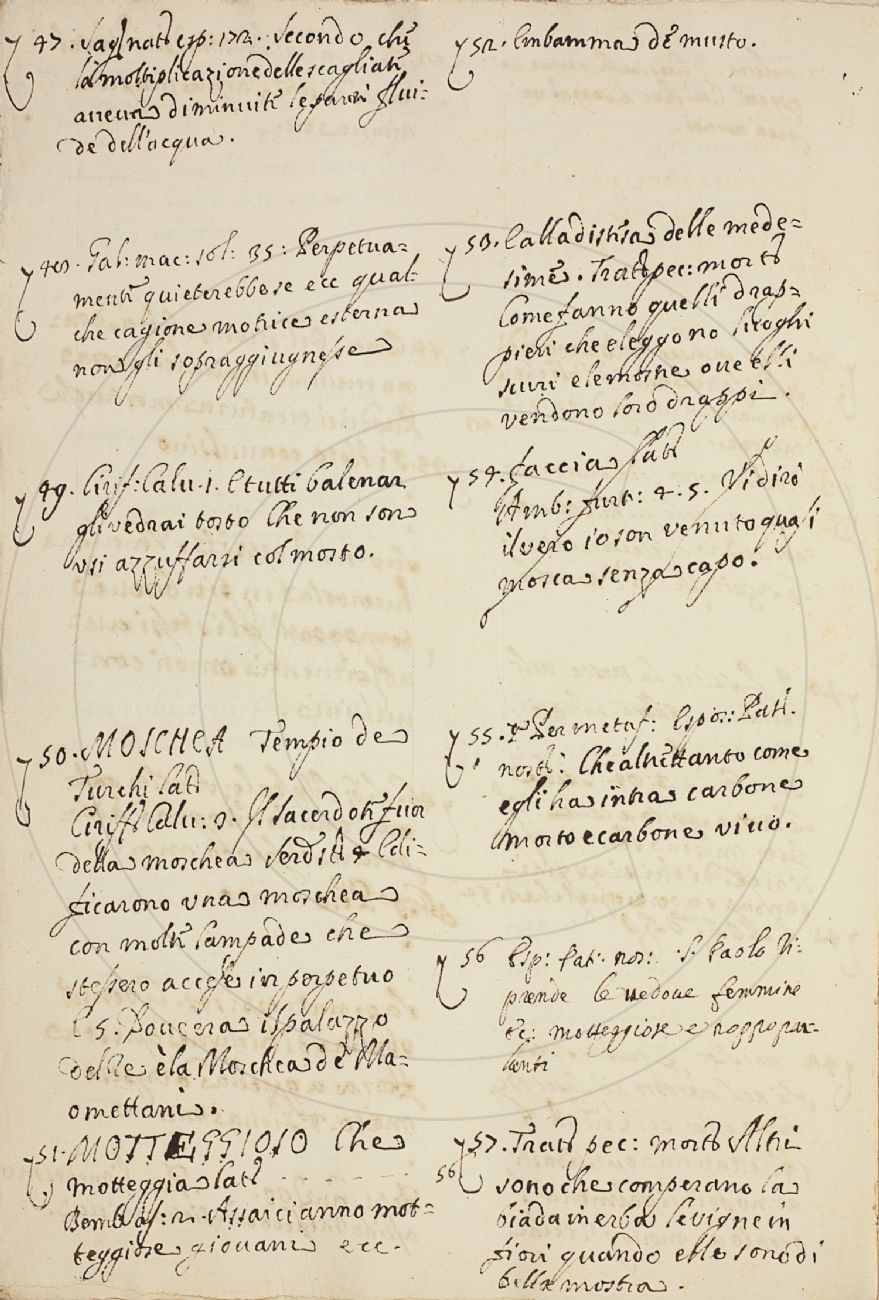 47. Sag: nat: esp: 172. Secondo che
la moltiplicazione delle scagliate
aveva diminuite le parti flui-
de dell'acqua.
48. Gal: mac: sol: 35: Perpetua-
mente quieterebbese ecc qual-
che cagione motrice esterna
non gli sopraggiugnesse
49. Cirif: Calu. 1. E tutti balenar
gli vedrai tosto Che non son
usi azzuffarsi col mosto.
50. MOSCHEA Tempio de
Turchi lat:
Ciriff: Calu: 3. Il sacerdote fuor
della moschea Edi-
ficarono una moschea
con molte lampade che
stessero accese in perpetuo
E 5. Dov'era il palazzo
delle è la Moschea de Ma-
omettani.
51. MOTTEGGIOSO Che
motteggia lat:
Bemb. as: 2. Assai ci anno mot-
teggiose giovani ecc.
52. Embamma de musto.
53. Calladistisa delle mede-
sime. Tratt: pec: mort:
Come fanno quelli drap-
pieri che eleggono luoghi
scuri e le mostre ove essi
vendono loro drappi.
54. faccia lat:
Amb: furt: 4. 5. Vi dirò
il vero io son venuto qua gli
mosca senza capo.
55. Per metaf: Espos: Pat:
nost: Che altrettanto come
egli ha intra carbone
morto e carbone vivo.
56 Esp: Pat: nos: S. Paolo ri-
prende le vedove femmine
ec: motteggiose e troppo par-
lanti
57. Tratt: pec: mort: Altri
56
sono che comperano la
biada in erba le vigne in
fiori quando elle sono di
bella mostra.